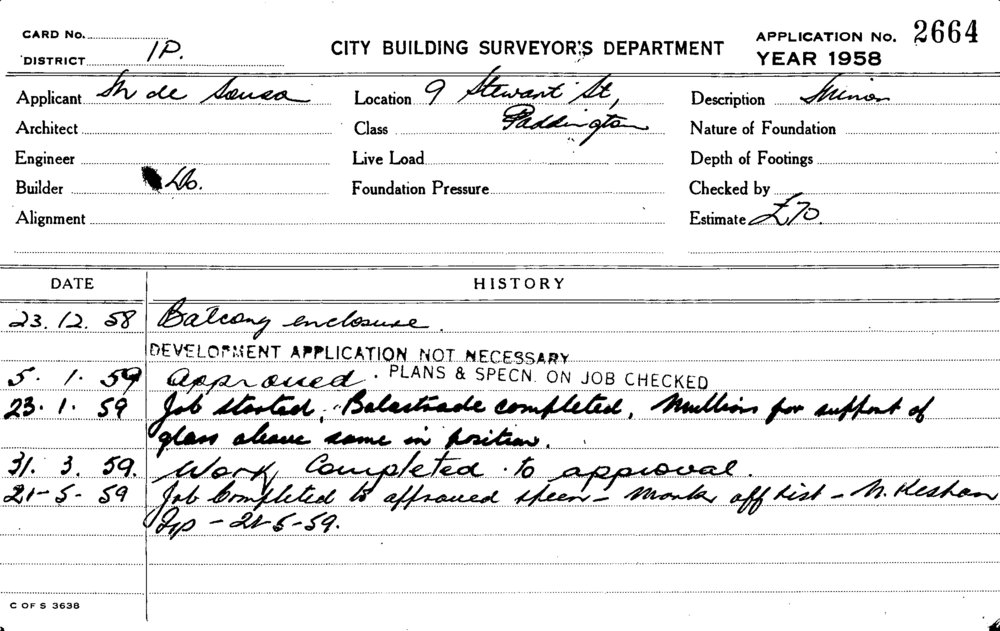 CARD No.
DISTRICT 1P.
CITY BUILDING SURVEYOR'S DEPARTMENT
APPLICATION No. 2664
YEAR 1958
Applicant M de Sousa
Location 9 Stewart St,
Paddington
Description Minor
Architect
Class
Nature of Foundation
Engineer
Live Load
Depth of Footings
Builder Do.
Foundation Pressure
Checked by
Alignment
Estimate £70.
DATE HISTORY
23.12.58 Balcony enclosure.
DEVELOPMENT APPLICATION NOT NECESSARY
5.1.59 Approved. PLANS & SPECN. ON JOB CHECKED
23.1.59 Job started. Balastrade completed, Mullions for support of
glass above same in position.
31.3.59. Work Completed to approval.
21-5-59 Job Completed to approved specn - Mark off list -
Isp - 21-5-59.
C OF S 3638